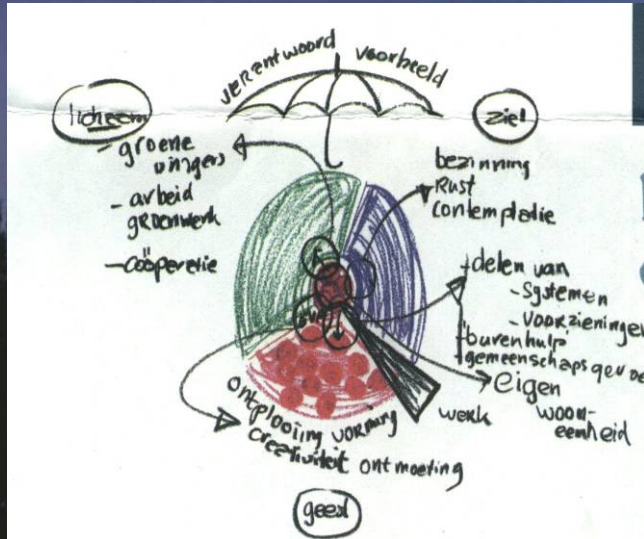 verantwoord voorbeeld
licheem
- groene
vingers
- arbeid
groenwerk
- coöperatie
ziel
bezinning
Rust
contemplatie
delen van
- Systemen
- voorzieningen
"burenhulp"
gemeenschapsgevoe
eigen
woon-
eenheid
werk
ontplooiing vorming
creativiteit ontmoeting
geest